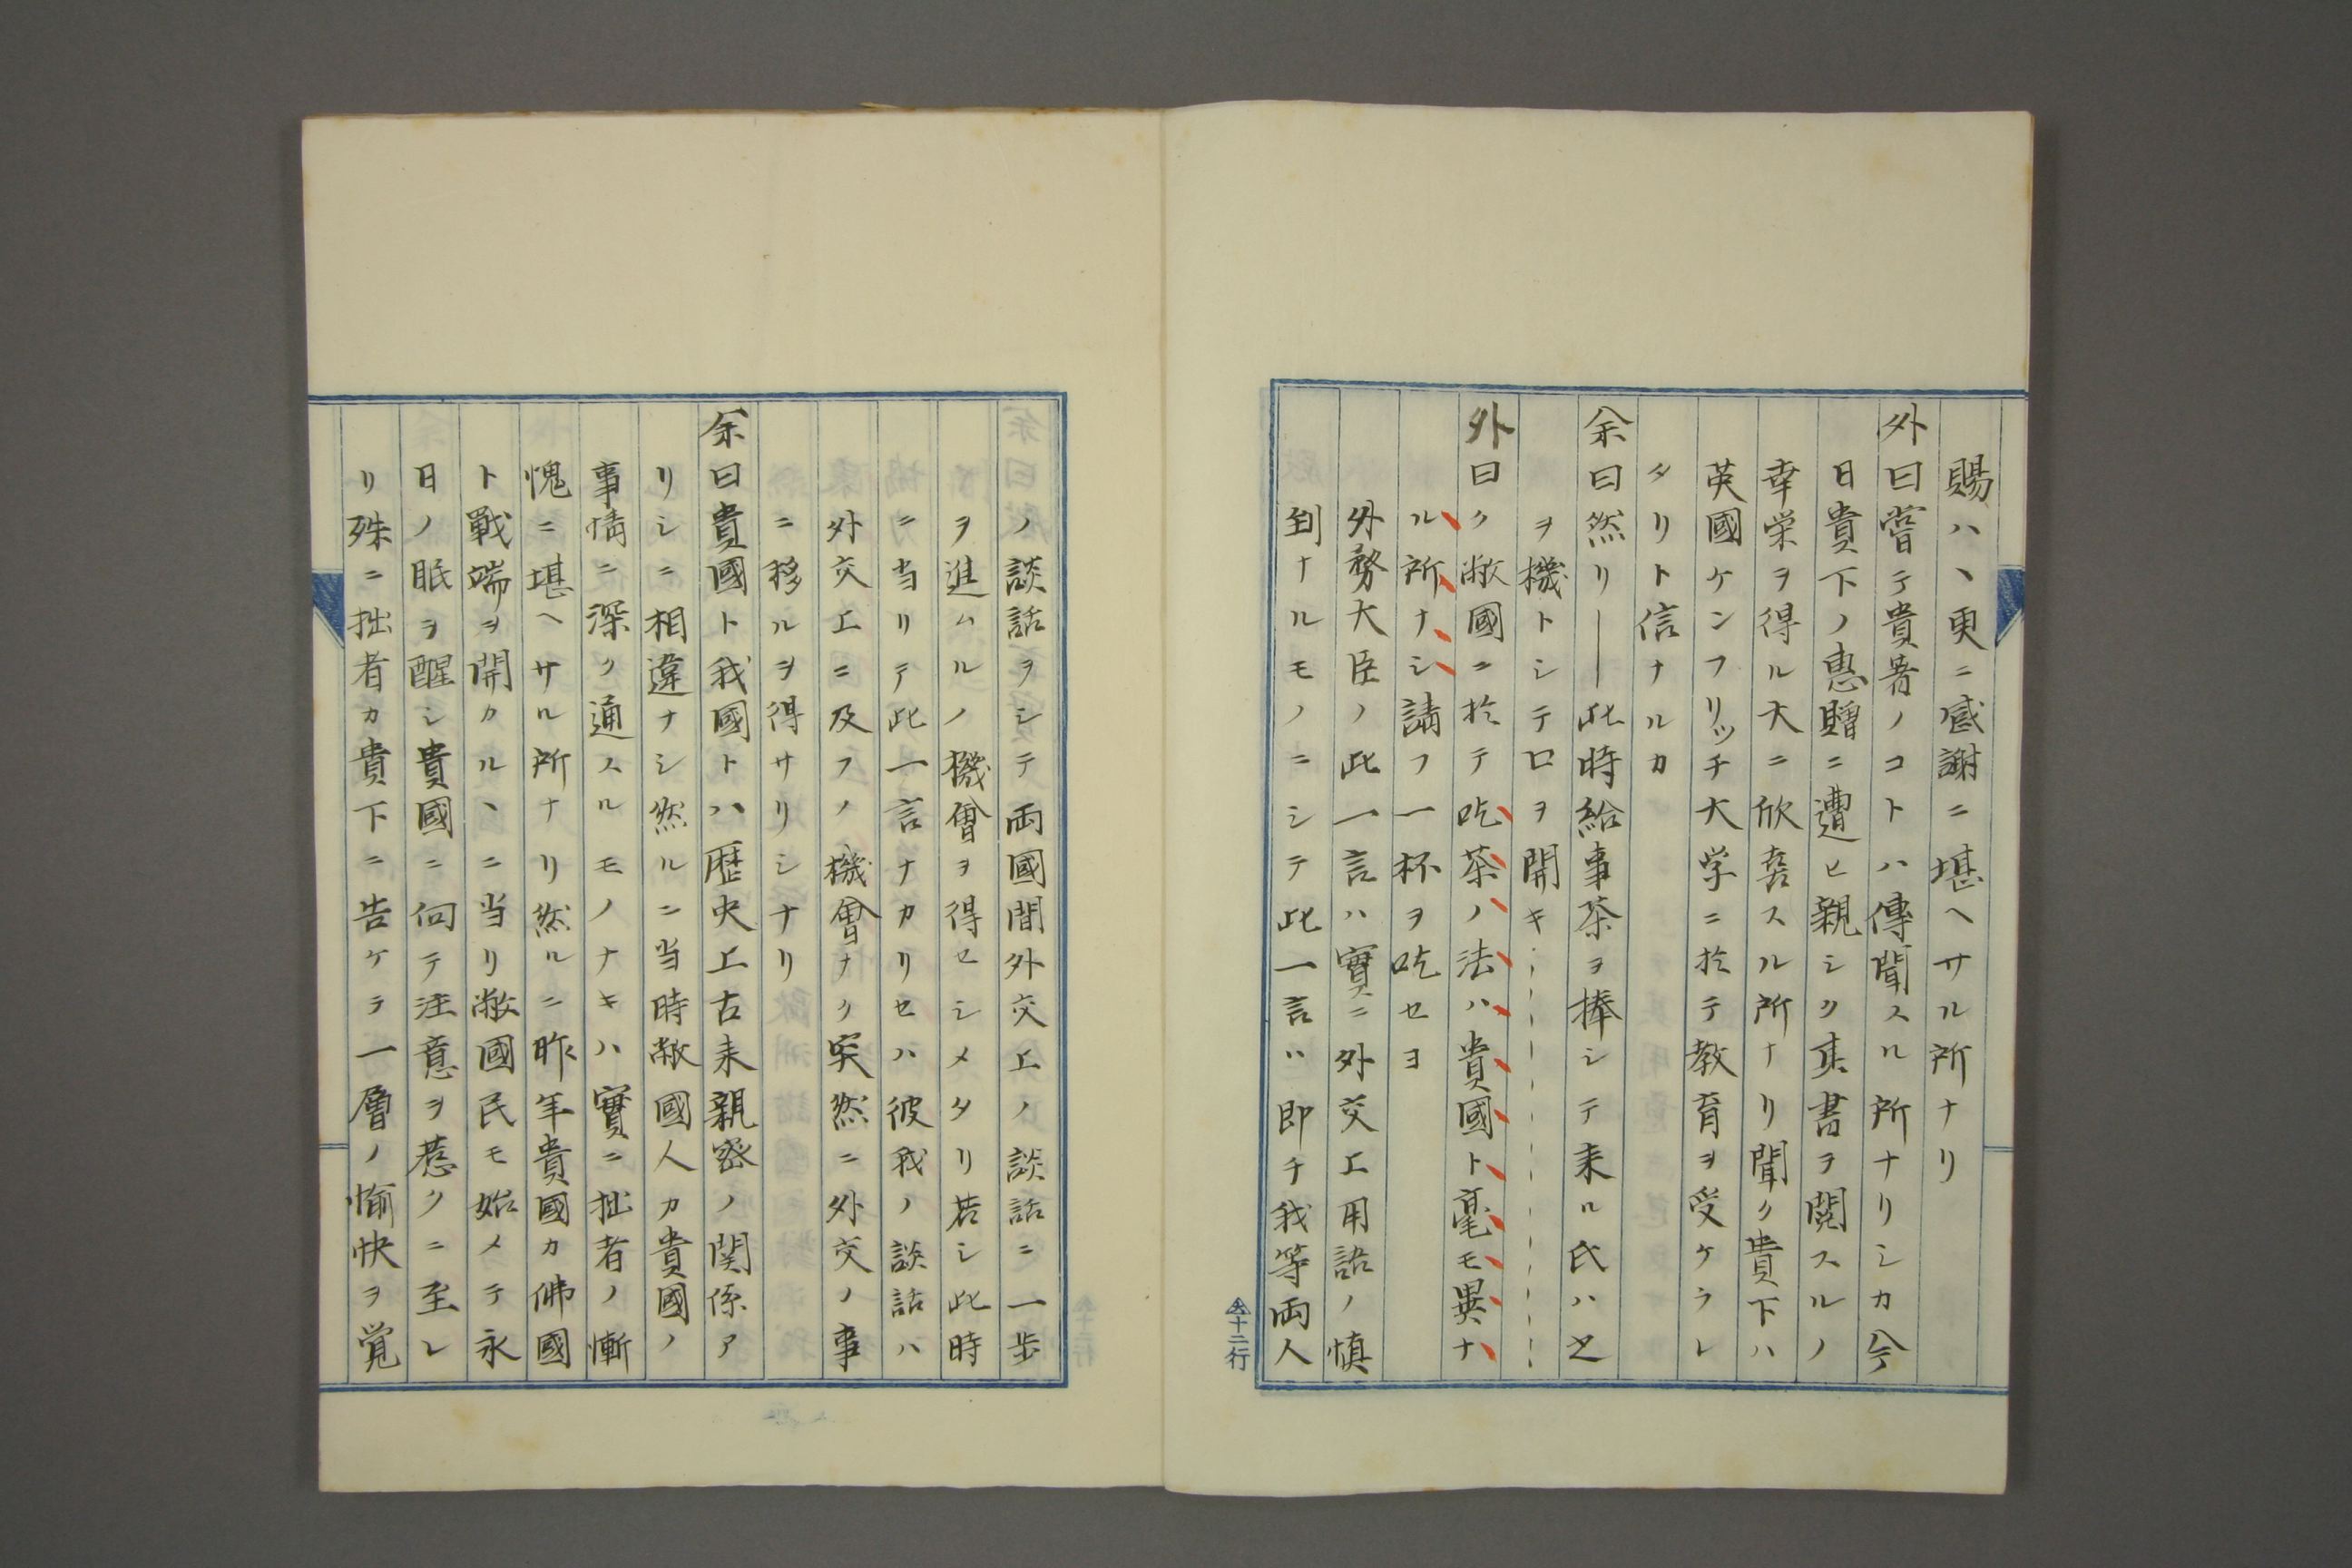 賜ハヽ更ニ感謝ニ堪ヘサル所ナリ
外曰嘗テ貴著ノコトハ傳聞スル所ナリシカ今
日貴下ノ惠贈ニ遭ヒ親シク其書ヲ閲スルノ
幸栄ヲ得ル大ニ欣喜スル所ナリ聞ク貴下ハ
英國ケンフリッチ大学ニ於テ教育ヲ受ケラレ
タリト信ナルカ
余曰然リ――此時給事茶ヲ捧シテ来ル氏ハ之
ヲ機トシテ口ヲ開キ
外曰ク敝國ニ於テ吃茶ノ法ハ貴國ト毫モ異ナ
ル所ナシ請フ一杯ヲ吃セヨ
外務大臣ノ此一言ハ實ニ外交上用語ノ慎
到ナルモノニシテ此一言ハ即チ我等両人
ノ談話ヲシテ両國間外交上ノ談話ニ一歩
ヲ進ムルノ機會ヲ得セシメタリ若シ此時
ニ当リテ此一言ナカリセハ彼我ノ談話ハ
外交上ニ及フノ機會ナク突然ニ外交ノ事
ニ移ルヲ得サリシナリ
余曰貴國ト我國トハ歴史上古来親密ノ関係ア
リシニ相違ナシ然ルニ当時敝國人カ貴國ノ
事情ニ深ク通スルモノナキハ實ニ拙者ノ慚
愧ニ堪ヘサル所ナリ然ルニ昨年貴國カ佛國
ト戰端ヲ開カルヽニ当リ敝國民モ始メテ永
日ノ眠ヲ醒シ貴國ニ向テ注意ヲ惹クニ至レ
リ殊ニ拙者カ貴下ニ告ケテ一層ノ愉快ヲ覚
十二行